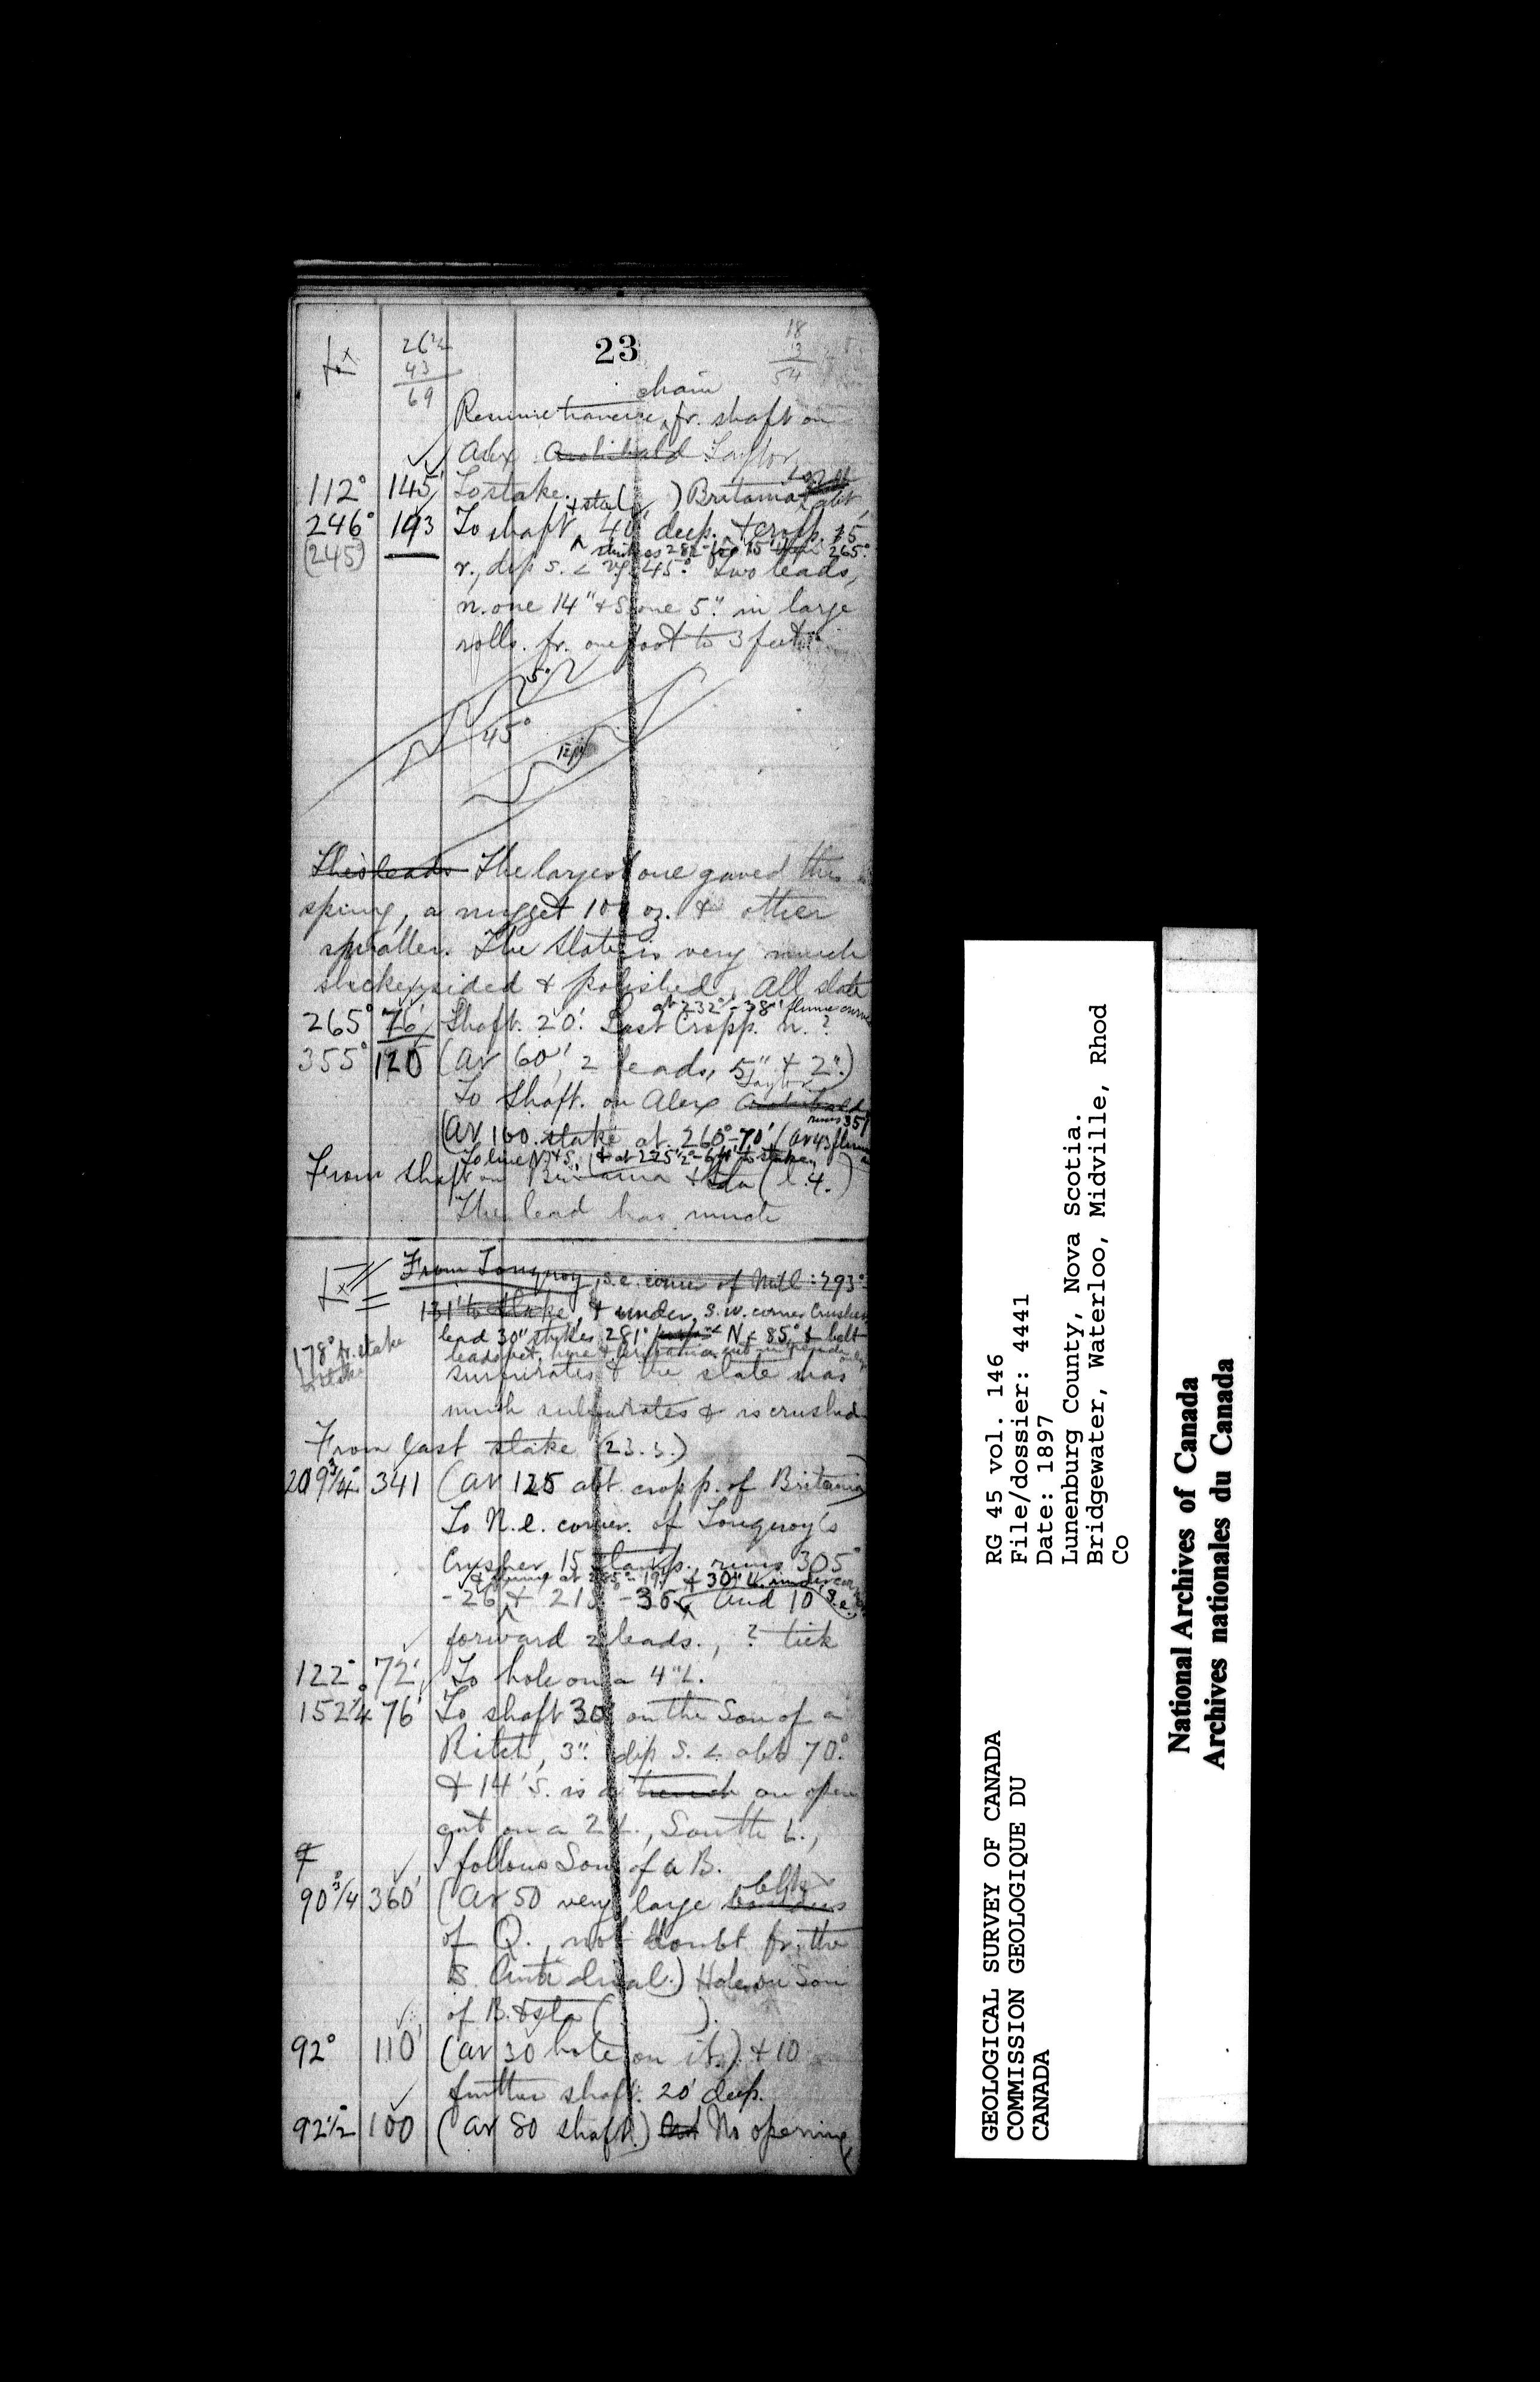 23
26½
43
69
18
3
54
chain
Resume traverse fr. shaft on
Alex Archibald Taylor
112° 145' To stake. Britannia
246° 193 To shaft 40' deep.
(245°) strikes 282° 265°
r., dip S. < 45°. Two leads,
n. one 14" & S. one 5" in large
rolls. fr. one foot to 3 feet
5"
45°
This leads The largest one gaved this
spring, a nugget 100 oz. & other
smaller. The slate is very much
slickensided & polished. All slate
at 232° - 38' flume
265° 76' Shaft. 20'. Last Cropp. n.?
355° 120 (At 60', 2 leads, 5" & 2".)
Taylor
To Shaft. on Alex Archibald
runs 351
(At 100. stake at 260° - 70' (At 43 flume
To line N & S, & at 225½° - 64' to stake
From shaft on Britannia & sta (l. 4.)
The lead has much
From Tonquoy, s.e. corner of Mill: 293°
131' to stake, & under, s.w. corner Crusher
lead 30" strikes 281° N < 85° & belt
178° fr. stake
leads bet. here & Britannia
sulphurates & the slate has
much sulphurates & is crushed
From last stake (23.3.)
209¾° 341 (At 125 abt. cropp. of Britannia)
To N.e. corner. of Tonquoy's
Crusher 15 stamp. runs 305°
& 30" L. under
-26 & 215 - 36 and 10 S.e.
forward 2 leads., ? tick
122° 72' To hole on a 4" L.
152¼ 76' To shaft 30' on the Son of a
Bitch, 3". dip S. < abt 70°.
& 14' S. is a trench an open
cut on a 2" L., South L.,
I follows Son of a B.
blks
90¾° 360' (At 50 very large boulders
of Q., not doubt fr. the
S. Anticlinal.) Hole on Son
of B. & sta ( ).
92° 110' (At 30 hole on it.) & 10
further shaft. 20' deep.
92½° 100 (At 80 shaft.) And No opening
GEOLOGICAL SURVEY OF CANADA
COMMISSION GEOLOGIQUE DU
CANADA
RG 45 vol. 146
File/dossier: 4441
Date: 1897
Lunenburg County, Nova Scotia.
Bridgewater, Waterloo, Midville, Rhod
Co
National Archives of Canada
Archives nationales du Canada